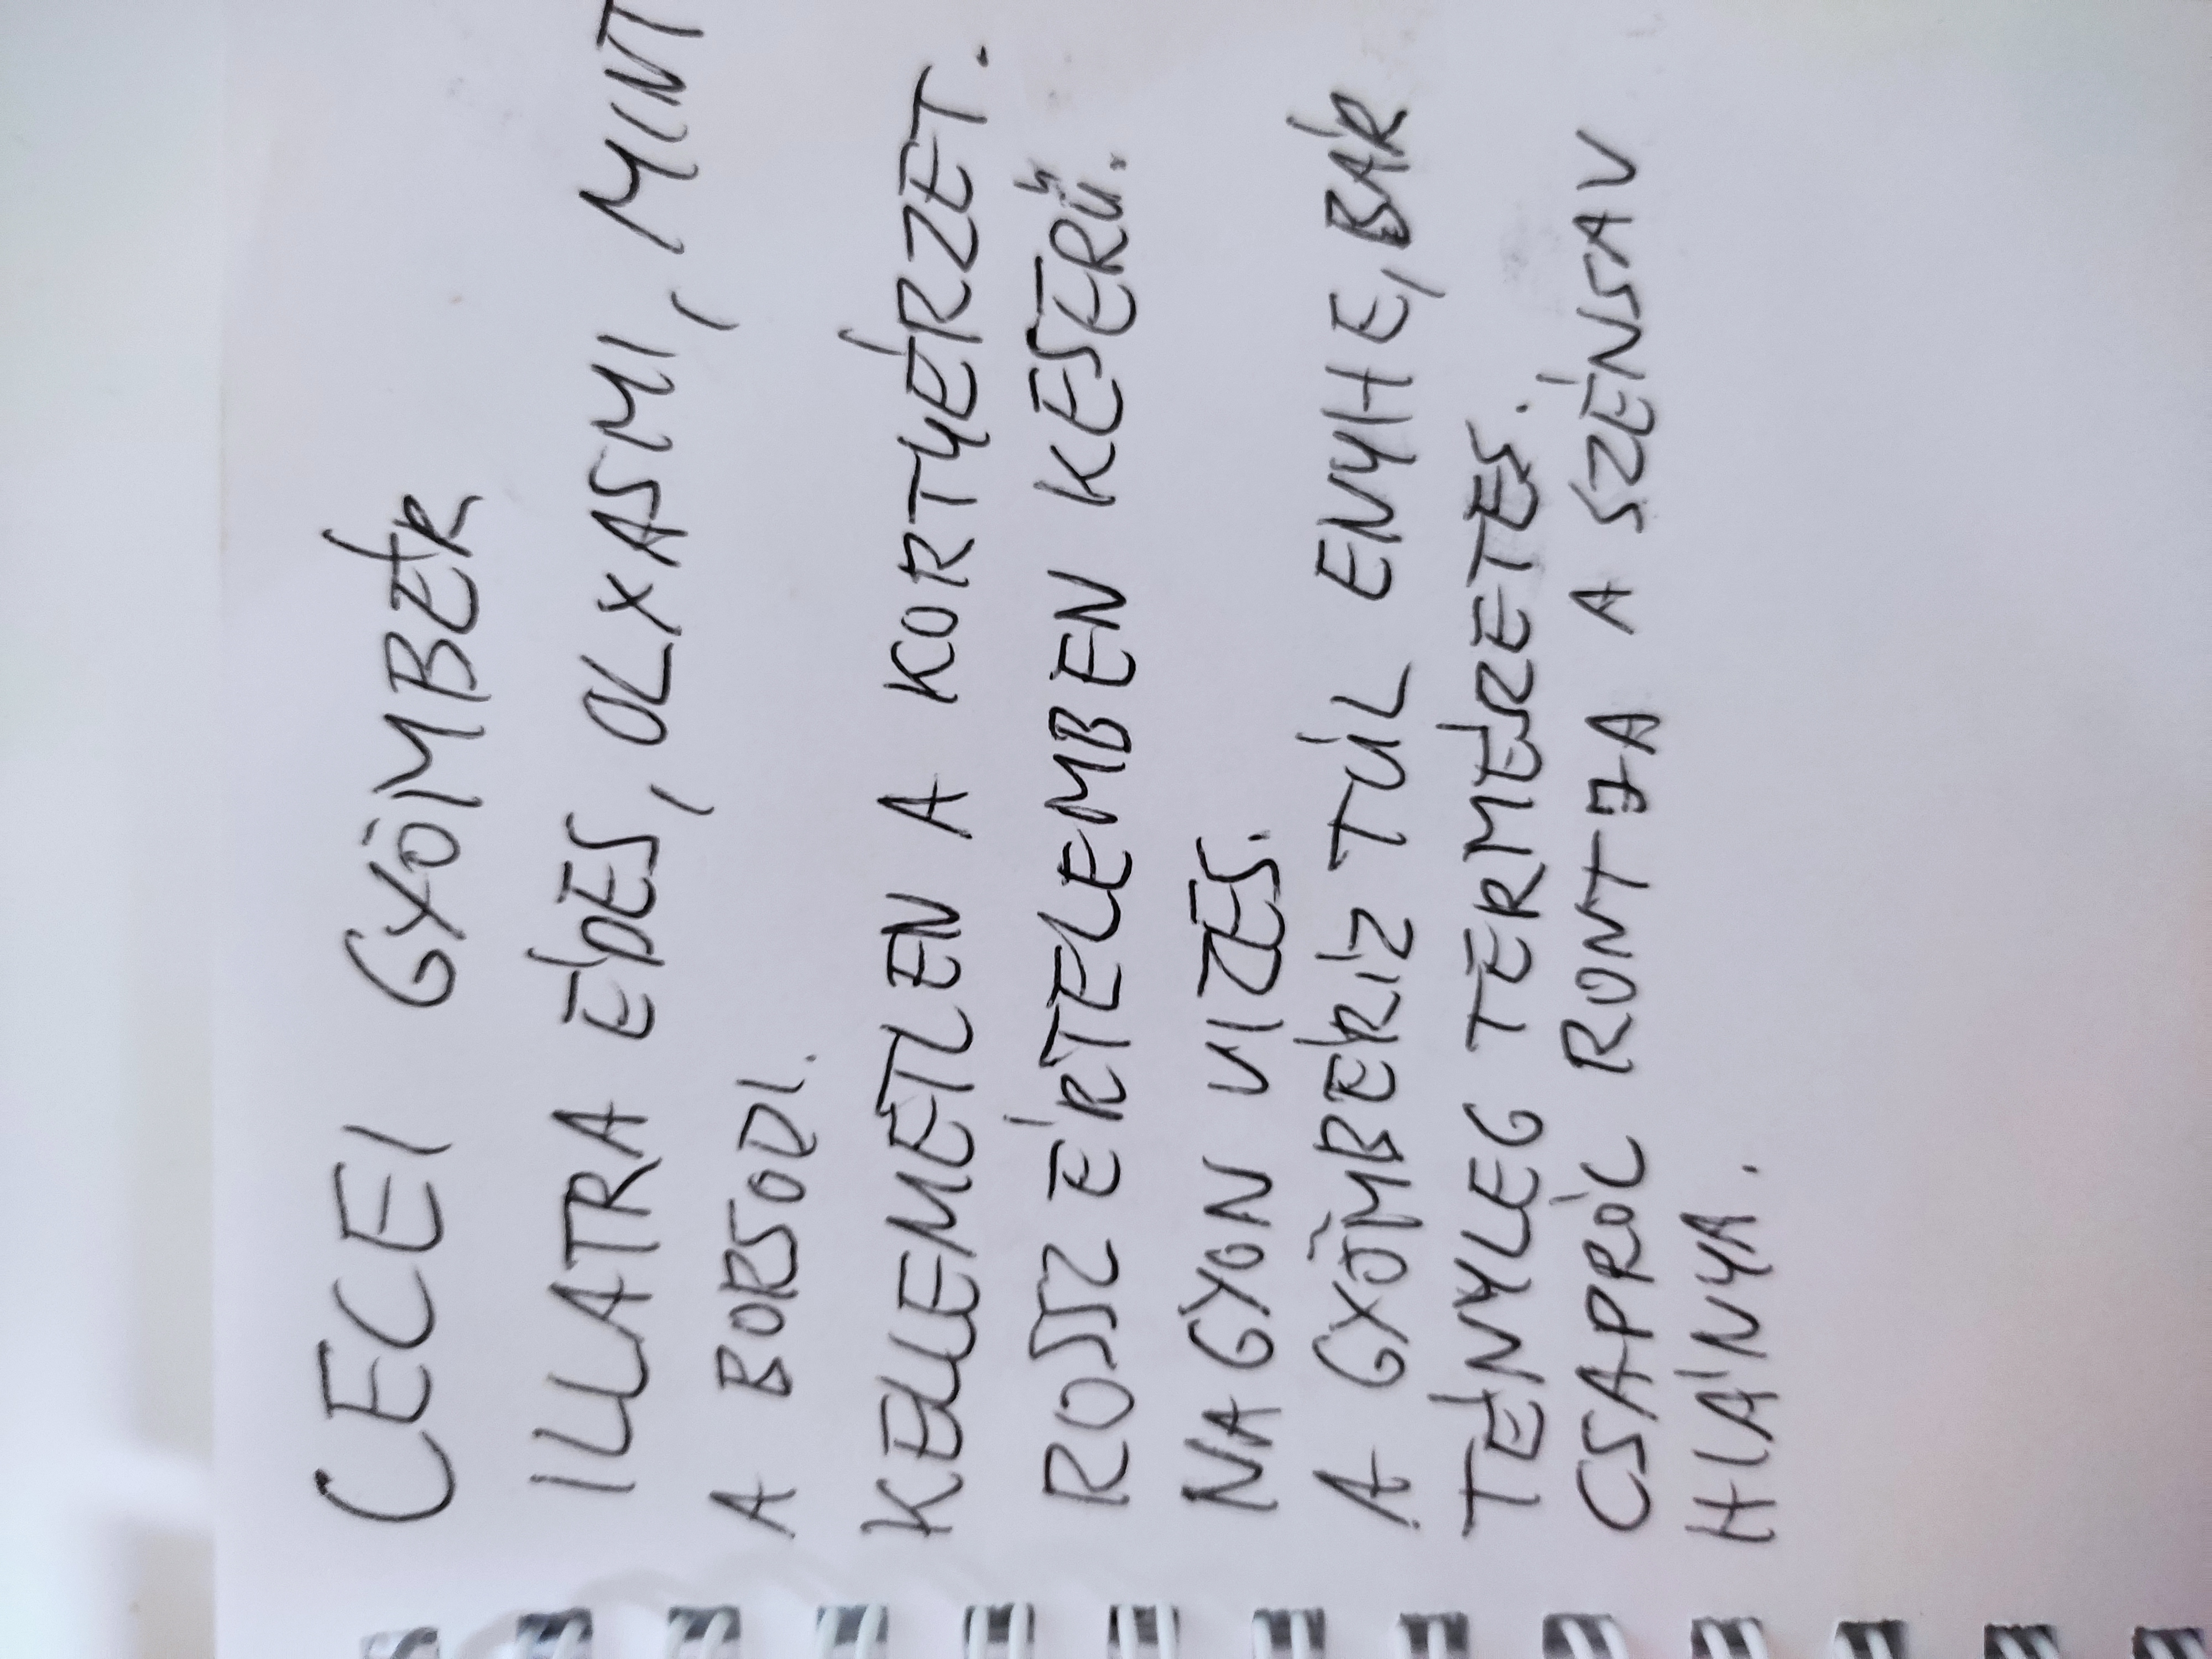 CECEI GYÖMBÉR
ILLATRA ÉDES, OLYASMI, MINT
A BORSODI.
KELLEMETLEN A KORTYÉRZET.
ROSSZ ÉRTELEMBEN KESERŰ.
NAGYON VIZES.
A GYÖMBÉRÍZ TÚL ENYHE, BÁR
TÉNYLEG TERMÉSZETES.
CSAPRÓL RONTJA A SZÉNSAV
HIÁNYA.